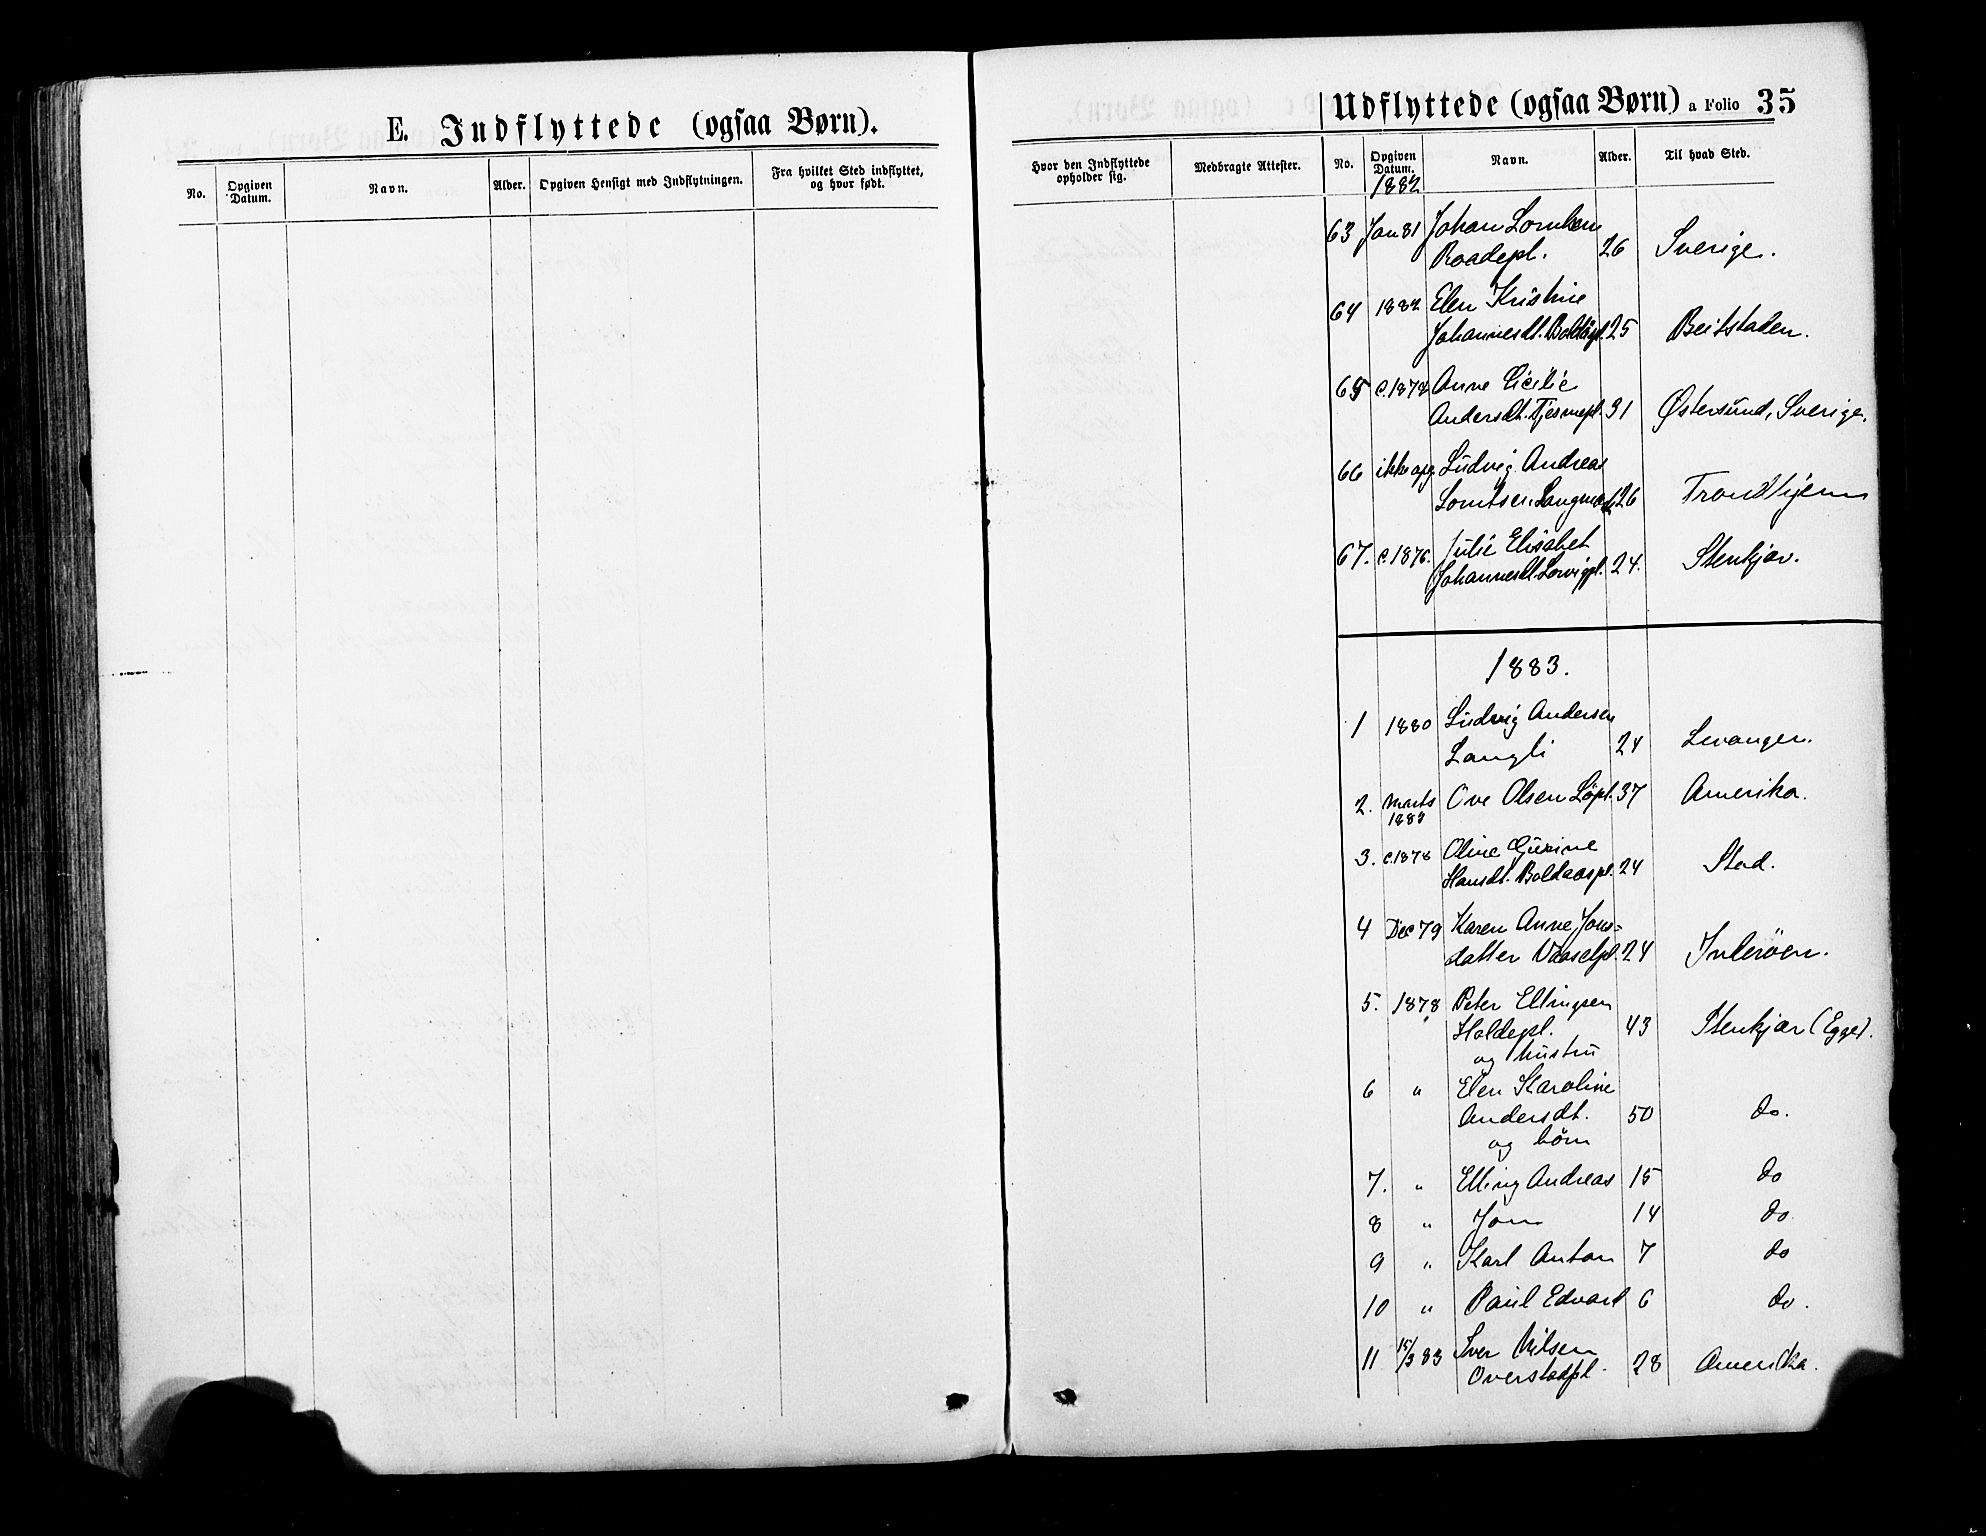 E. Indflyttede (ogsaa Børn).
Udflyttede (ogsaa Børn) a Folio 35
No. Opgiven Datum. Navn. Alder. Opgiven Hensigt med Indflytningen. Fra hvilket Sted indflyttet, og hvor født.
Hvor den Indflyttede opholder sig. Medbragte Attester. No. Opgiven Datum. Navn. Alder. Til hvad Sted.
1882
63 Jan 81 Johan
Roadepl. 26 Sverige.
64 1882 Elen Kristine
Johannesdt. 25 Beitstaden.
65 c. 1872 Anne Cicilie
Andersdt. 31 Østersund, Sverige.
66 ikke opg Ludvig Andreas
26 Trondhjem
67. c. 1876. Julie Elisabet
Johannesdt. 24. Stenkjær.
1883.
1 1880 Ludvig Andersen
Langli 24 Levanger.
2. Marts Ove Olsen 37 Amerika.
3. c. 1878 Oline Gurine
Hansdt. Boldaaspl. 24 Stod.
4 Dec 79 Karen Anne Jons=
datter 24 Inderöen.
5. 1878 Peter Ellingsen
Holdepl. 43 Stenkjær (Egge).
og hustru
6 " Elen Karoline
Andersdt. 50 do.
og börn
7. " Elling Andreas 15 do
8 " Jon 14 do
9 " Karl Anton 7 do
10 " Paul Edvart 6 do.
11 15/3 83 Iver Nilsen
28 Amerika.